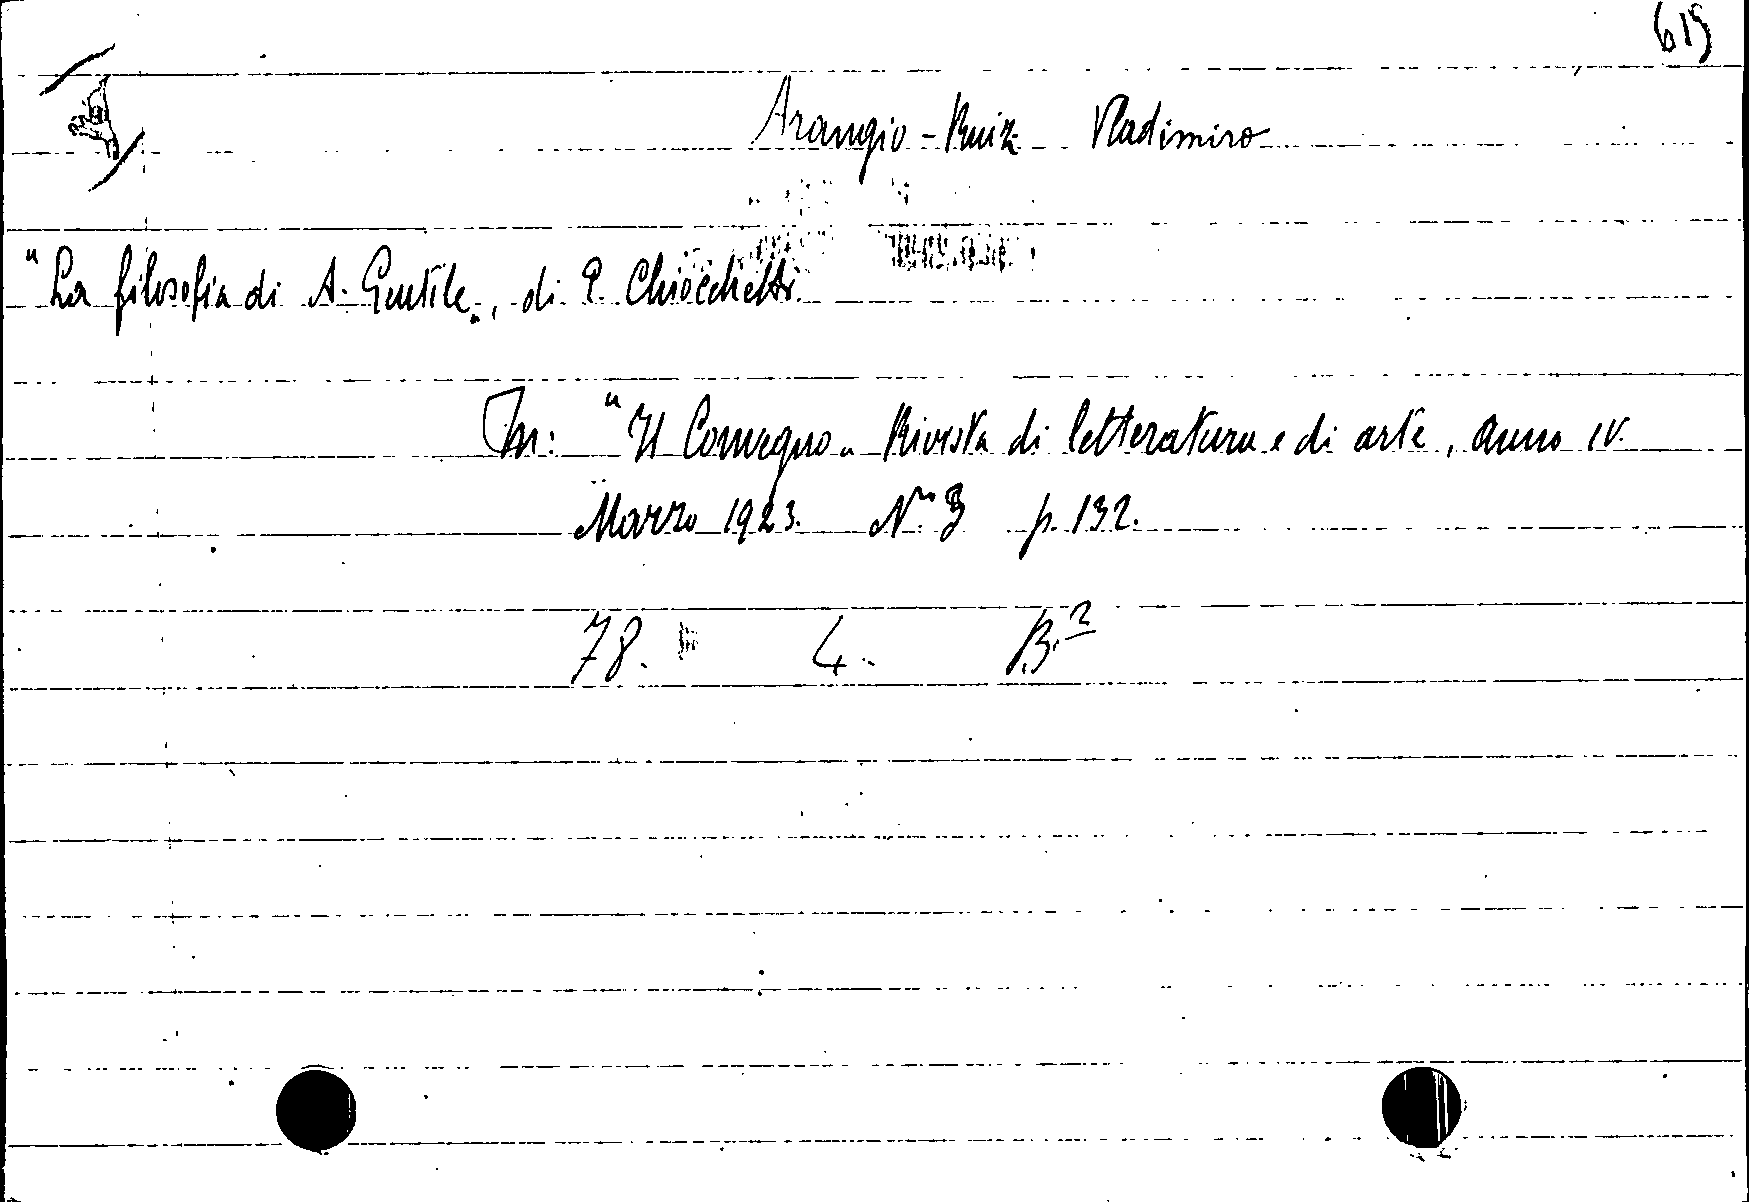 619
Arangio-Ruiz Vladimiro
"La filosofia di A. Gentile", di E. Chiocchetti
In: "Il Convegno" Rivista di letteratura e di arte, anno IV.
Marzo 1923. N° 3 p. 132.
78. 4. B.2